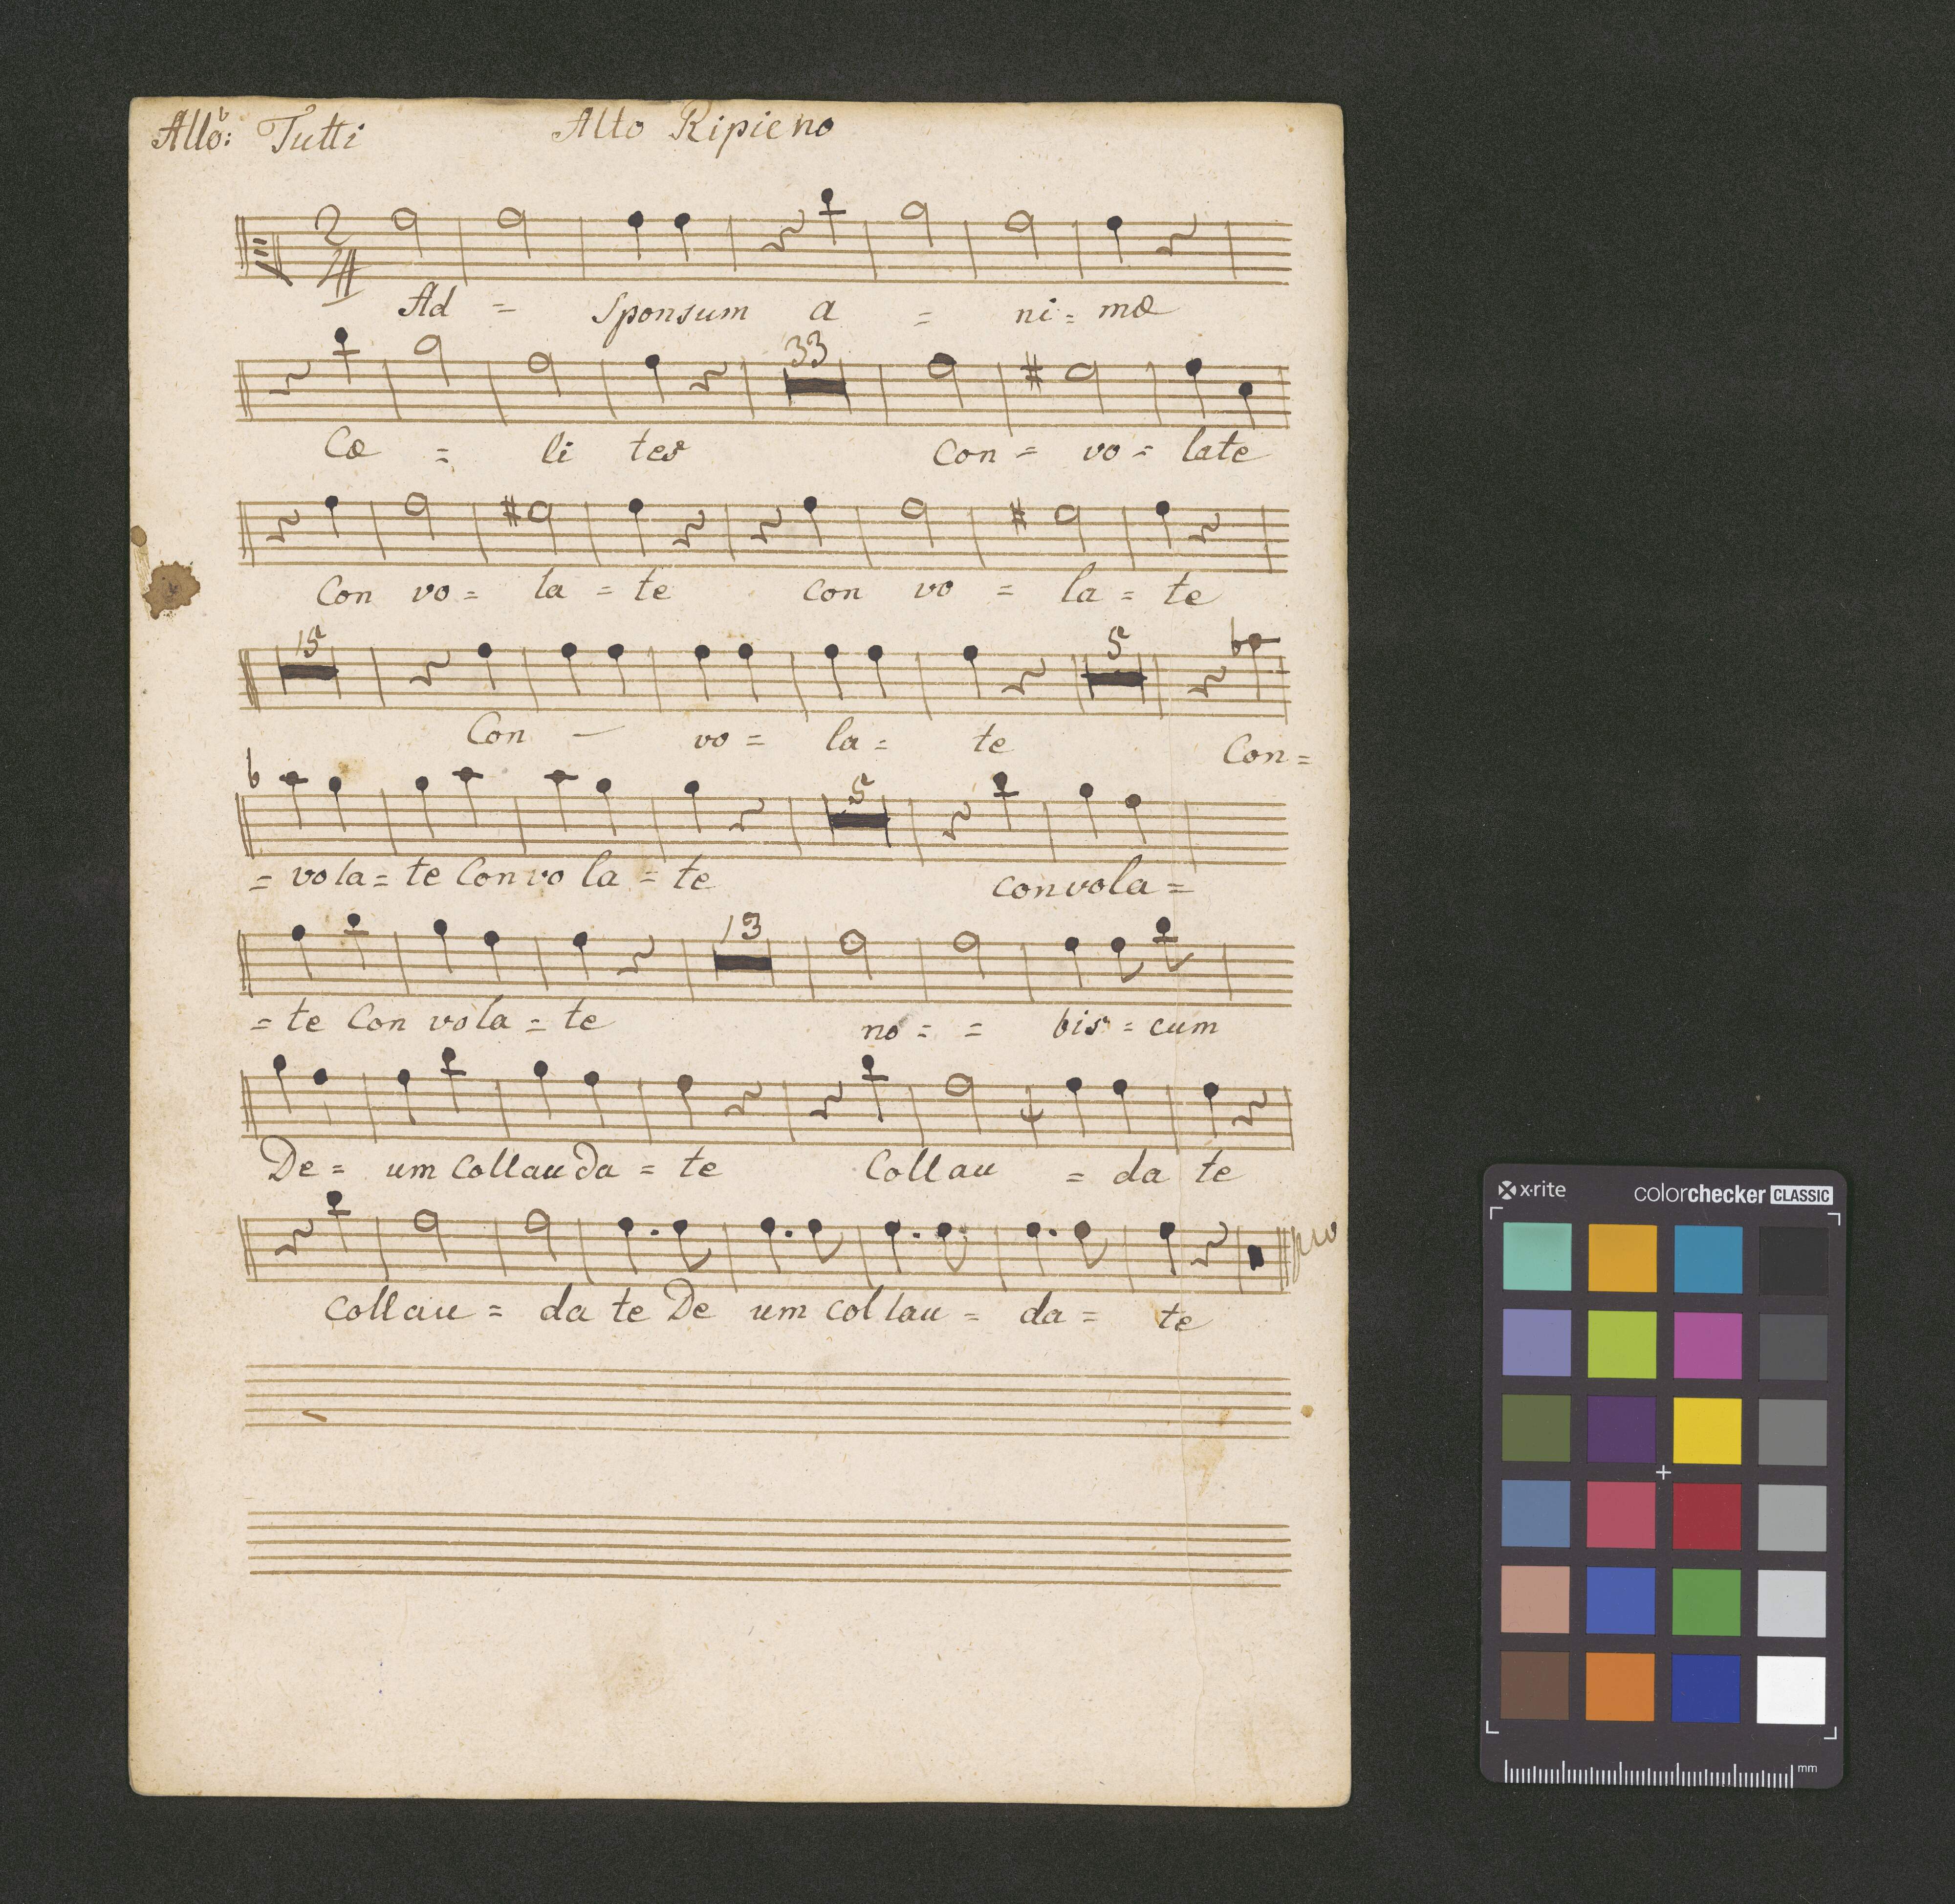 Allo: Tutti Alto Ripieno
2/4
Ad = Sponsum a = ni = mæ
33
Cœ = li tes Con = vo = late
Con vo = la = te con vo = la = te
15 5
Con — vo = la = te Con =
5
= vo la = te Con vo la = te con vola =
13
= te Con vo la = te no = = bis = cum
De = um Collau da = te Collau = da te
Collau = da te De um collau = da = te
x-rite colorchecker CLASSIC
mm